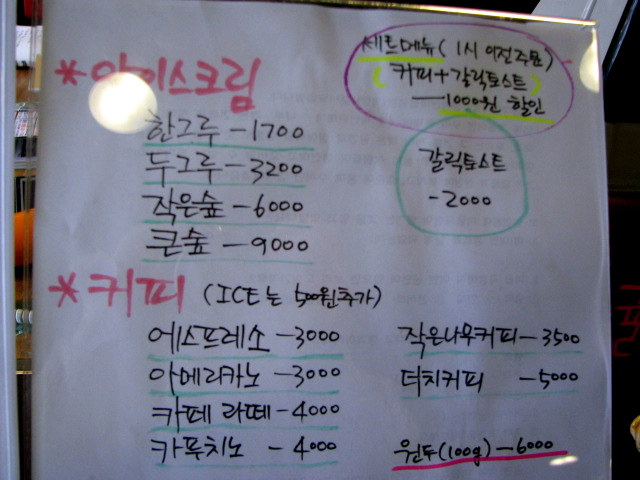 *아이스크림
한그루 - 1700
두그루 - 3200
작은숲 - 6000
큰숲 - 9000
세트메뉴 ( 1시 이전 주문 )
( 커피 + 갈릭토스트 )
— 1000원 할인
갈릭토스트
- 2000
*커피 (ICE는 500원 추가)
에스프레소 - 3000
아메리카노 - 3000
카페 라떼 - 4000
카푸치노 - 4000
작은나무커피 - 3500
더치커피 - 5000
원두(100g) - 6000